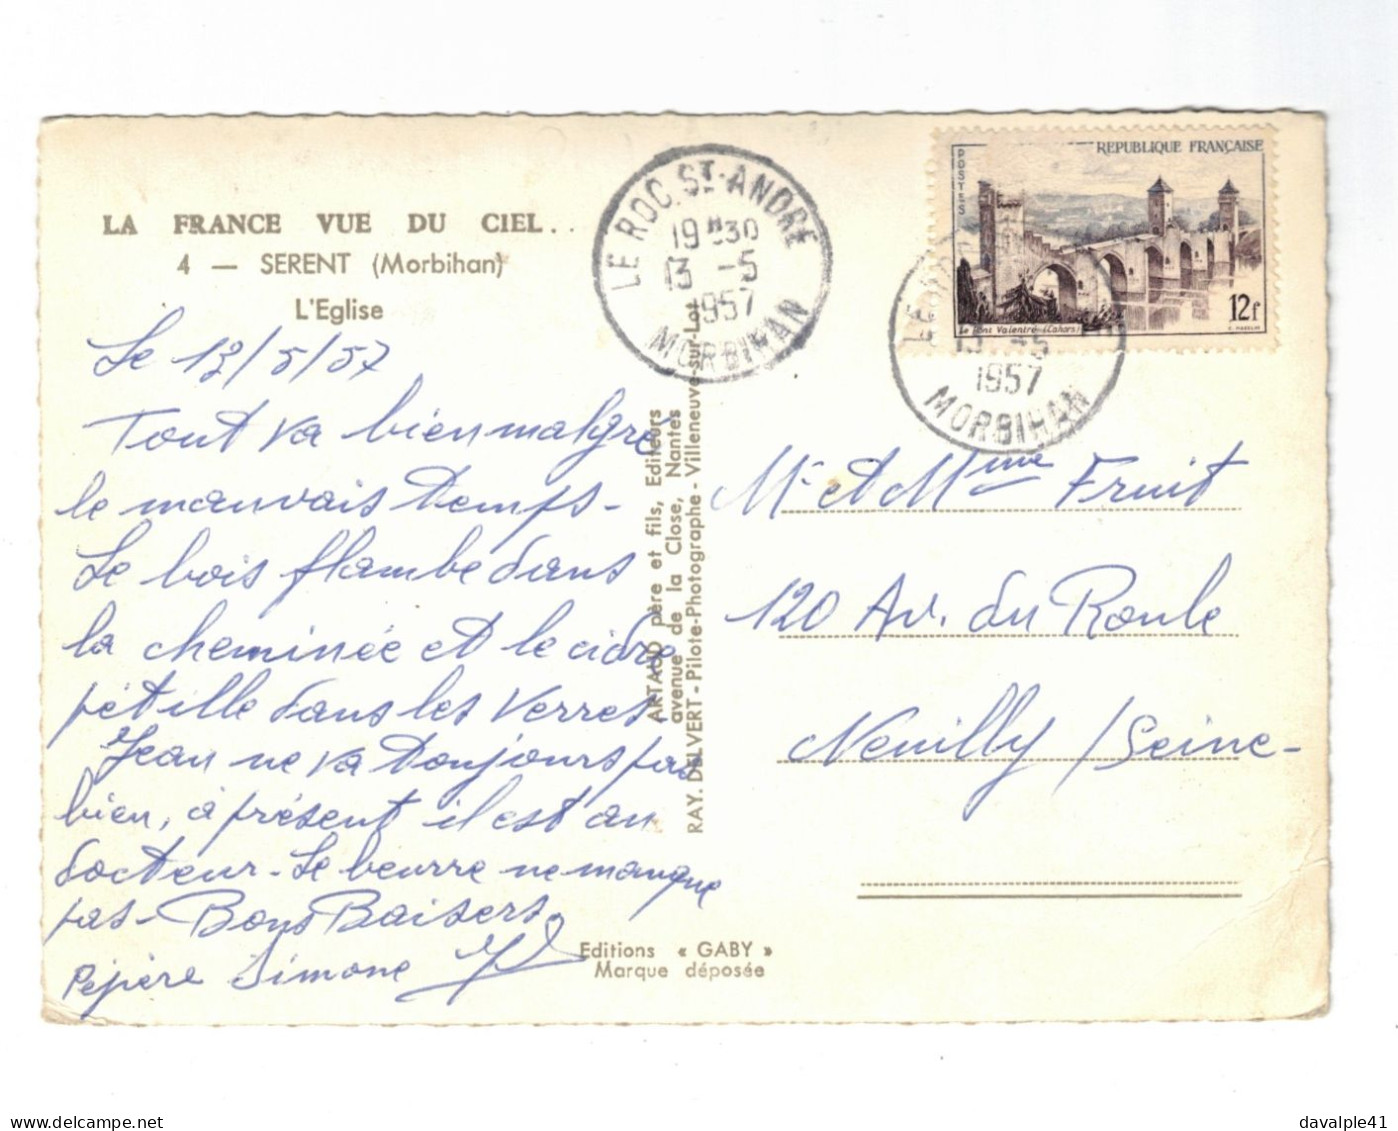 LA FRANCE VUE DU CIEL...
4 — SERENT (Morbihan)
L'Eglise
Le 13/5/57
Tout va bien malgré
le mauvais temps -
Le bois flambe dans
la cheminée et le cidre
pétille dans les verres
Jean ne va toujours pas
bien, à présent il est au
docteur - Le beurre ne manque
pas - Bons Baisers
Pépère Simone
ARTAUD père et fils, Editeurs
avenue de la Close, Nantes
RAY. DELVERT - Pilote-Photographe - Villeneuve-sur-Lot
Editions « GABY »
Marque déposée
LE ROC ST-ANDRÉ
19H30
13 -5
1957
MORBIHAN
REPUBLIQUE FRANÇAISE
POSTES
12f
Le Pont Valentré (Cahors)
13 -5
1957
MORBIHAN
Mr et Mme Fruit
120 Av. du Roule
Neuilly /Seine -
delcampe.net
davalple41